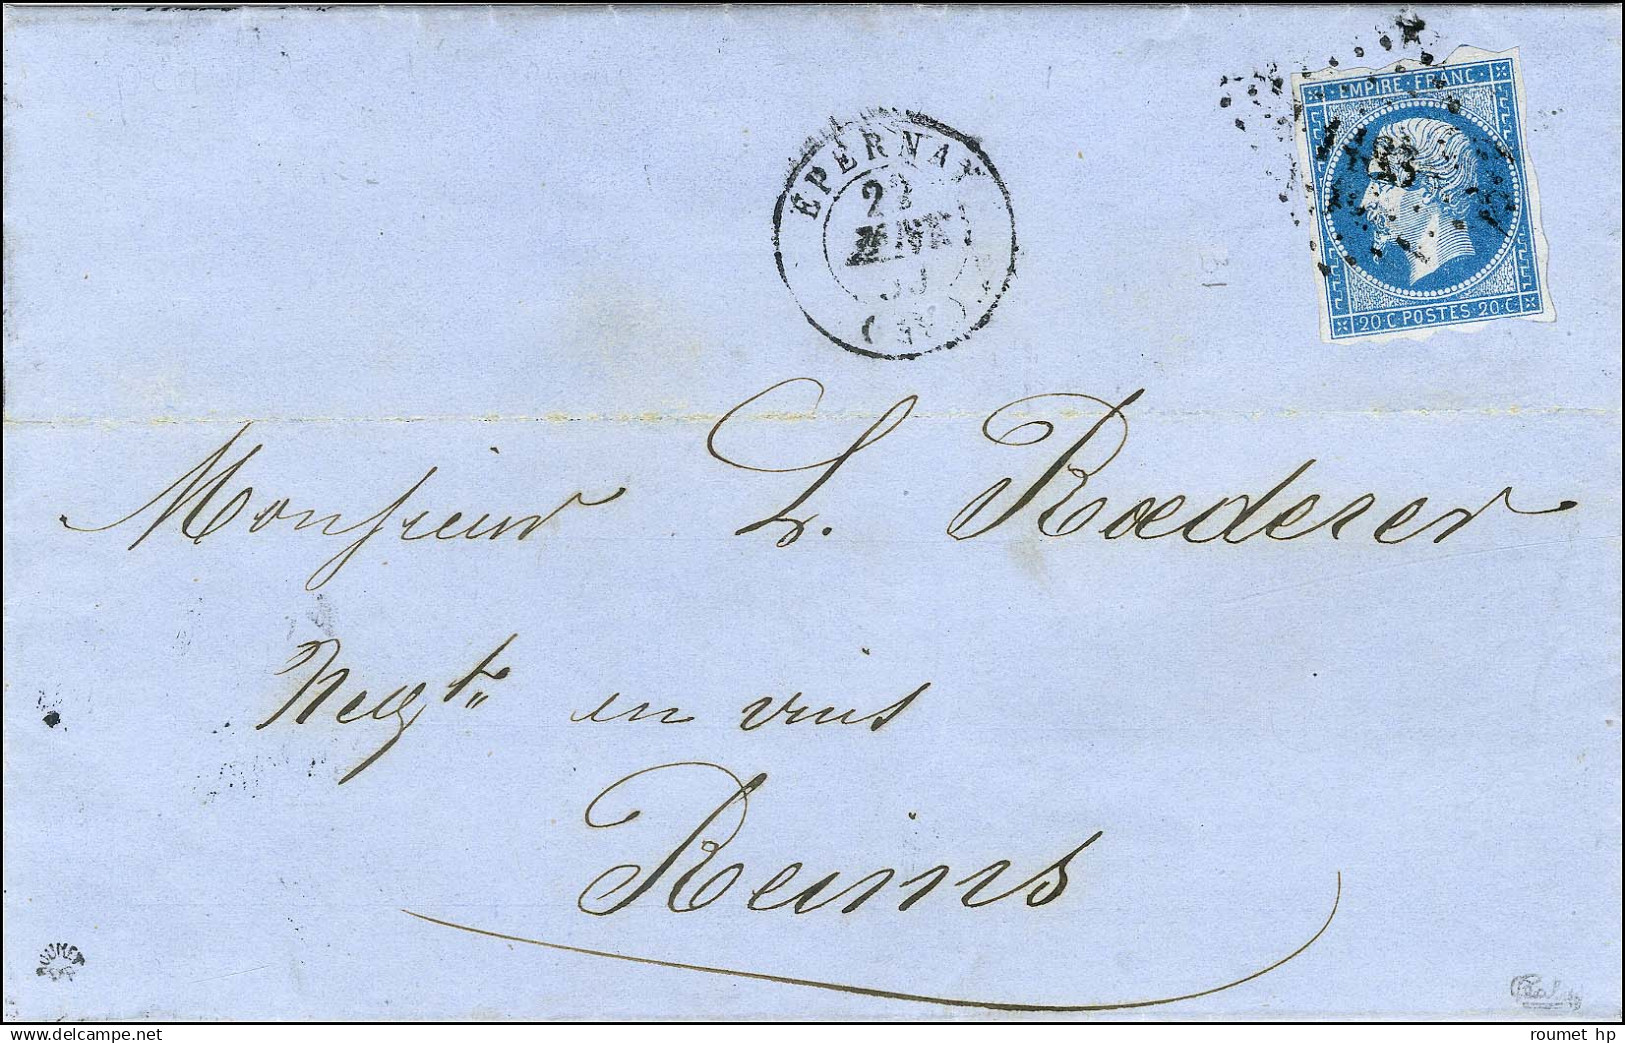 EMPIRE · FRANC ·
20 · C · POSTES · 20 · C
EPERNAY
22
Monsieur L. Roederer
Negt. en vins
Reims
ROUMET
HP
roumet hp